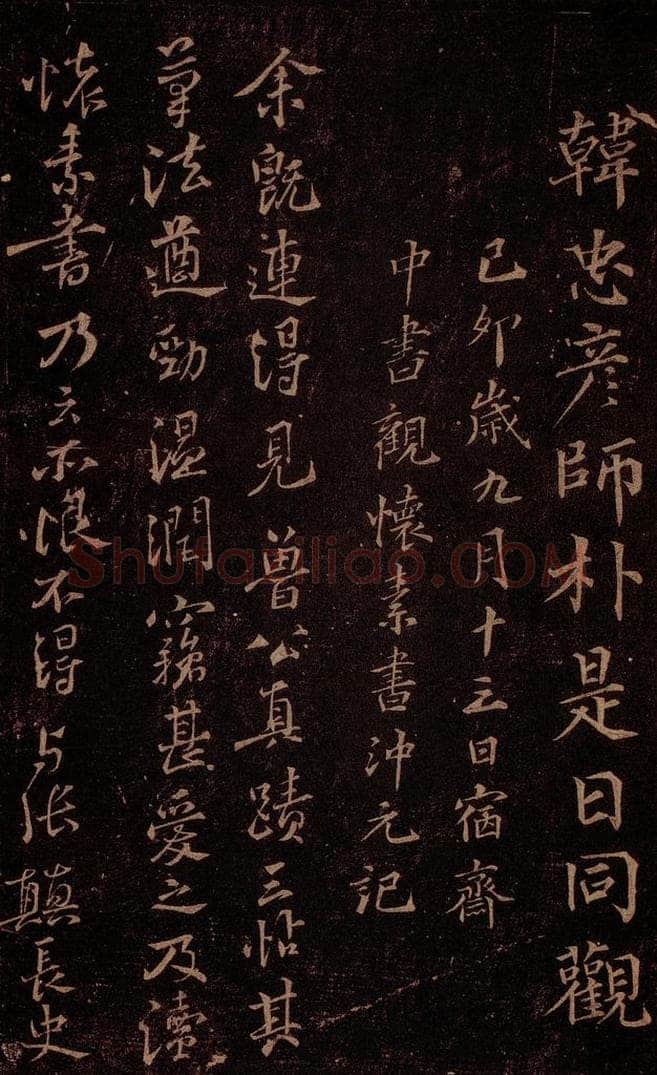 韓忠彦師朴是日同觀
己卯歳九月十三日宿齋
中書觀懷素書沖元記
余既連得見魯公真蹟三帖其
筆法遒勁溫潤竊甚愛之及讀
懷素書乃云亦恨不得与張顛長史
Shufaziliao.COM